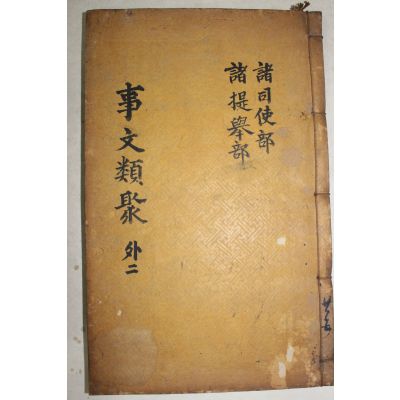 諸司使部
諸提舉部
事文類聚 外二